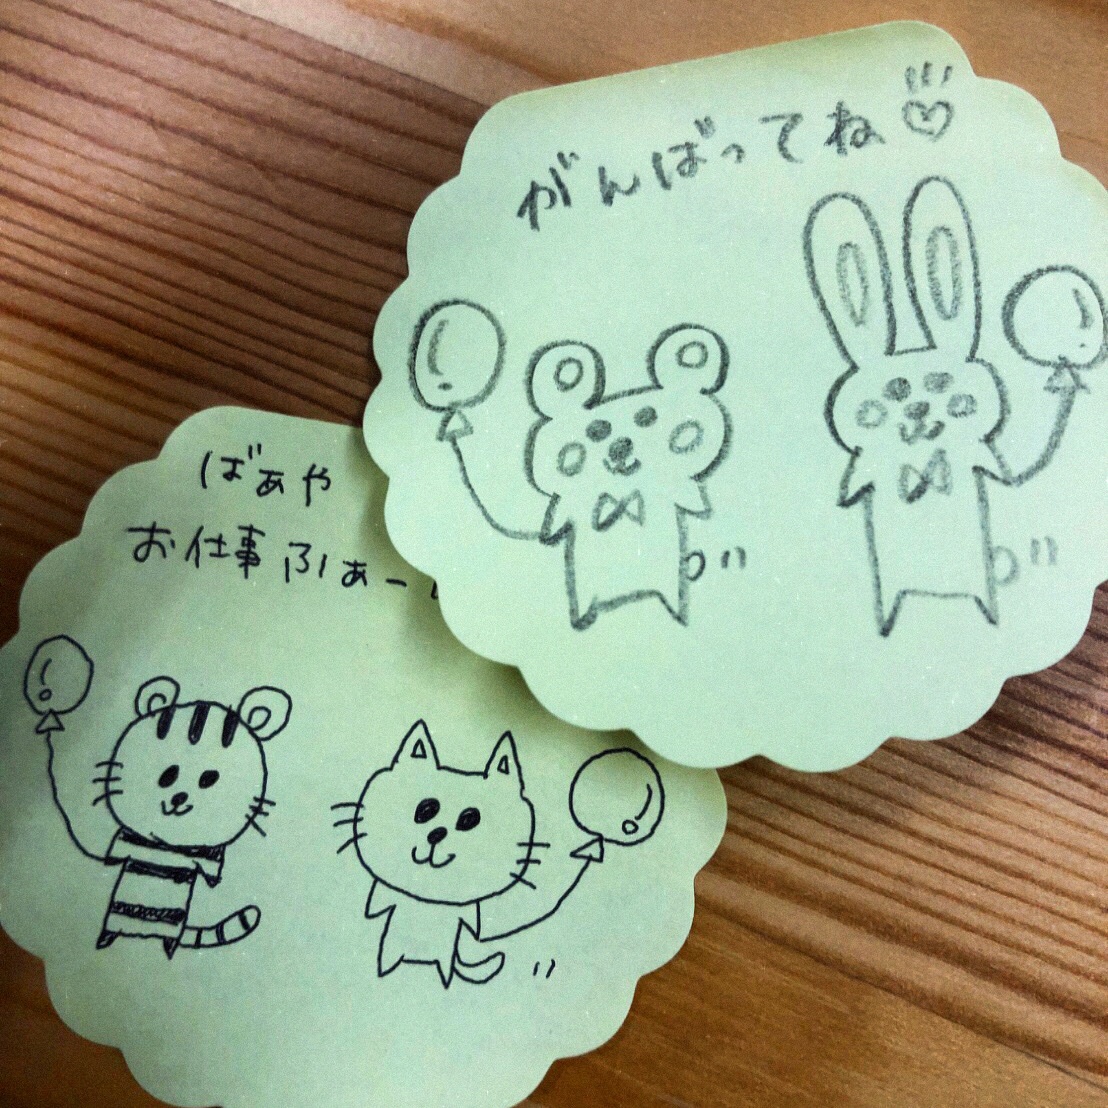 がんばってね♡
ばあや
お仕事ふぁー